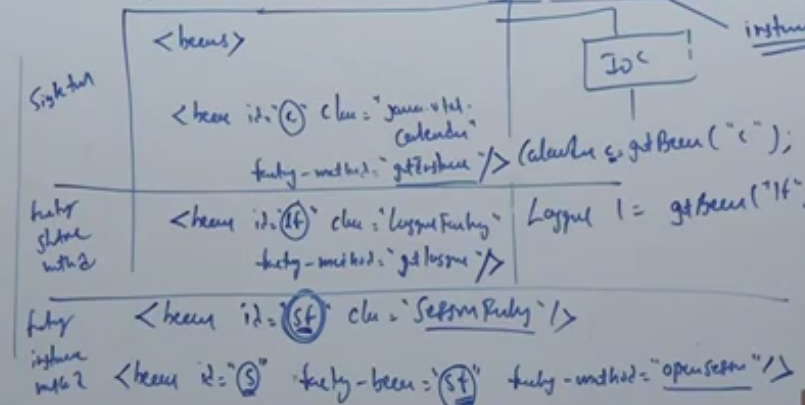 <beans>
IOC
Singleton
<bean id="c" class="java.util.
Calendar"
factory-method="getInstance"/> Calendar c=getBean("c");
factory
static
method
<bean id="lf" class="LoggerFactory"
factory-method="getLogger"/>
Logger l = getBean("lf"
factory
instance
method
<bean id="sf" class="SessionFactory"/>
<bean id="s" factory-bean="sf" factory-method="openSession"/>